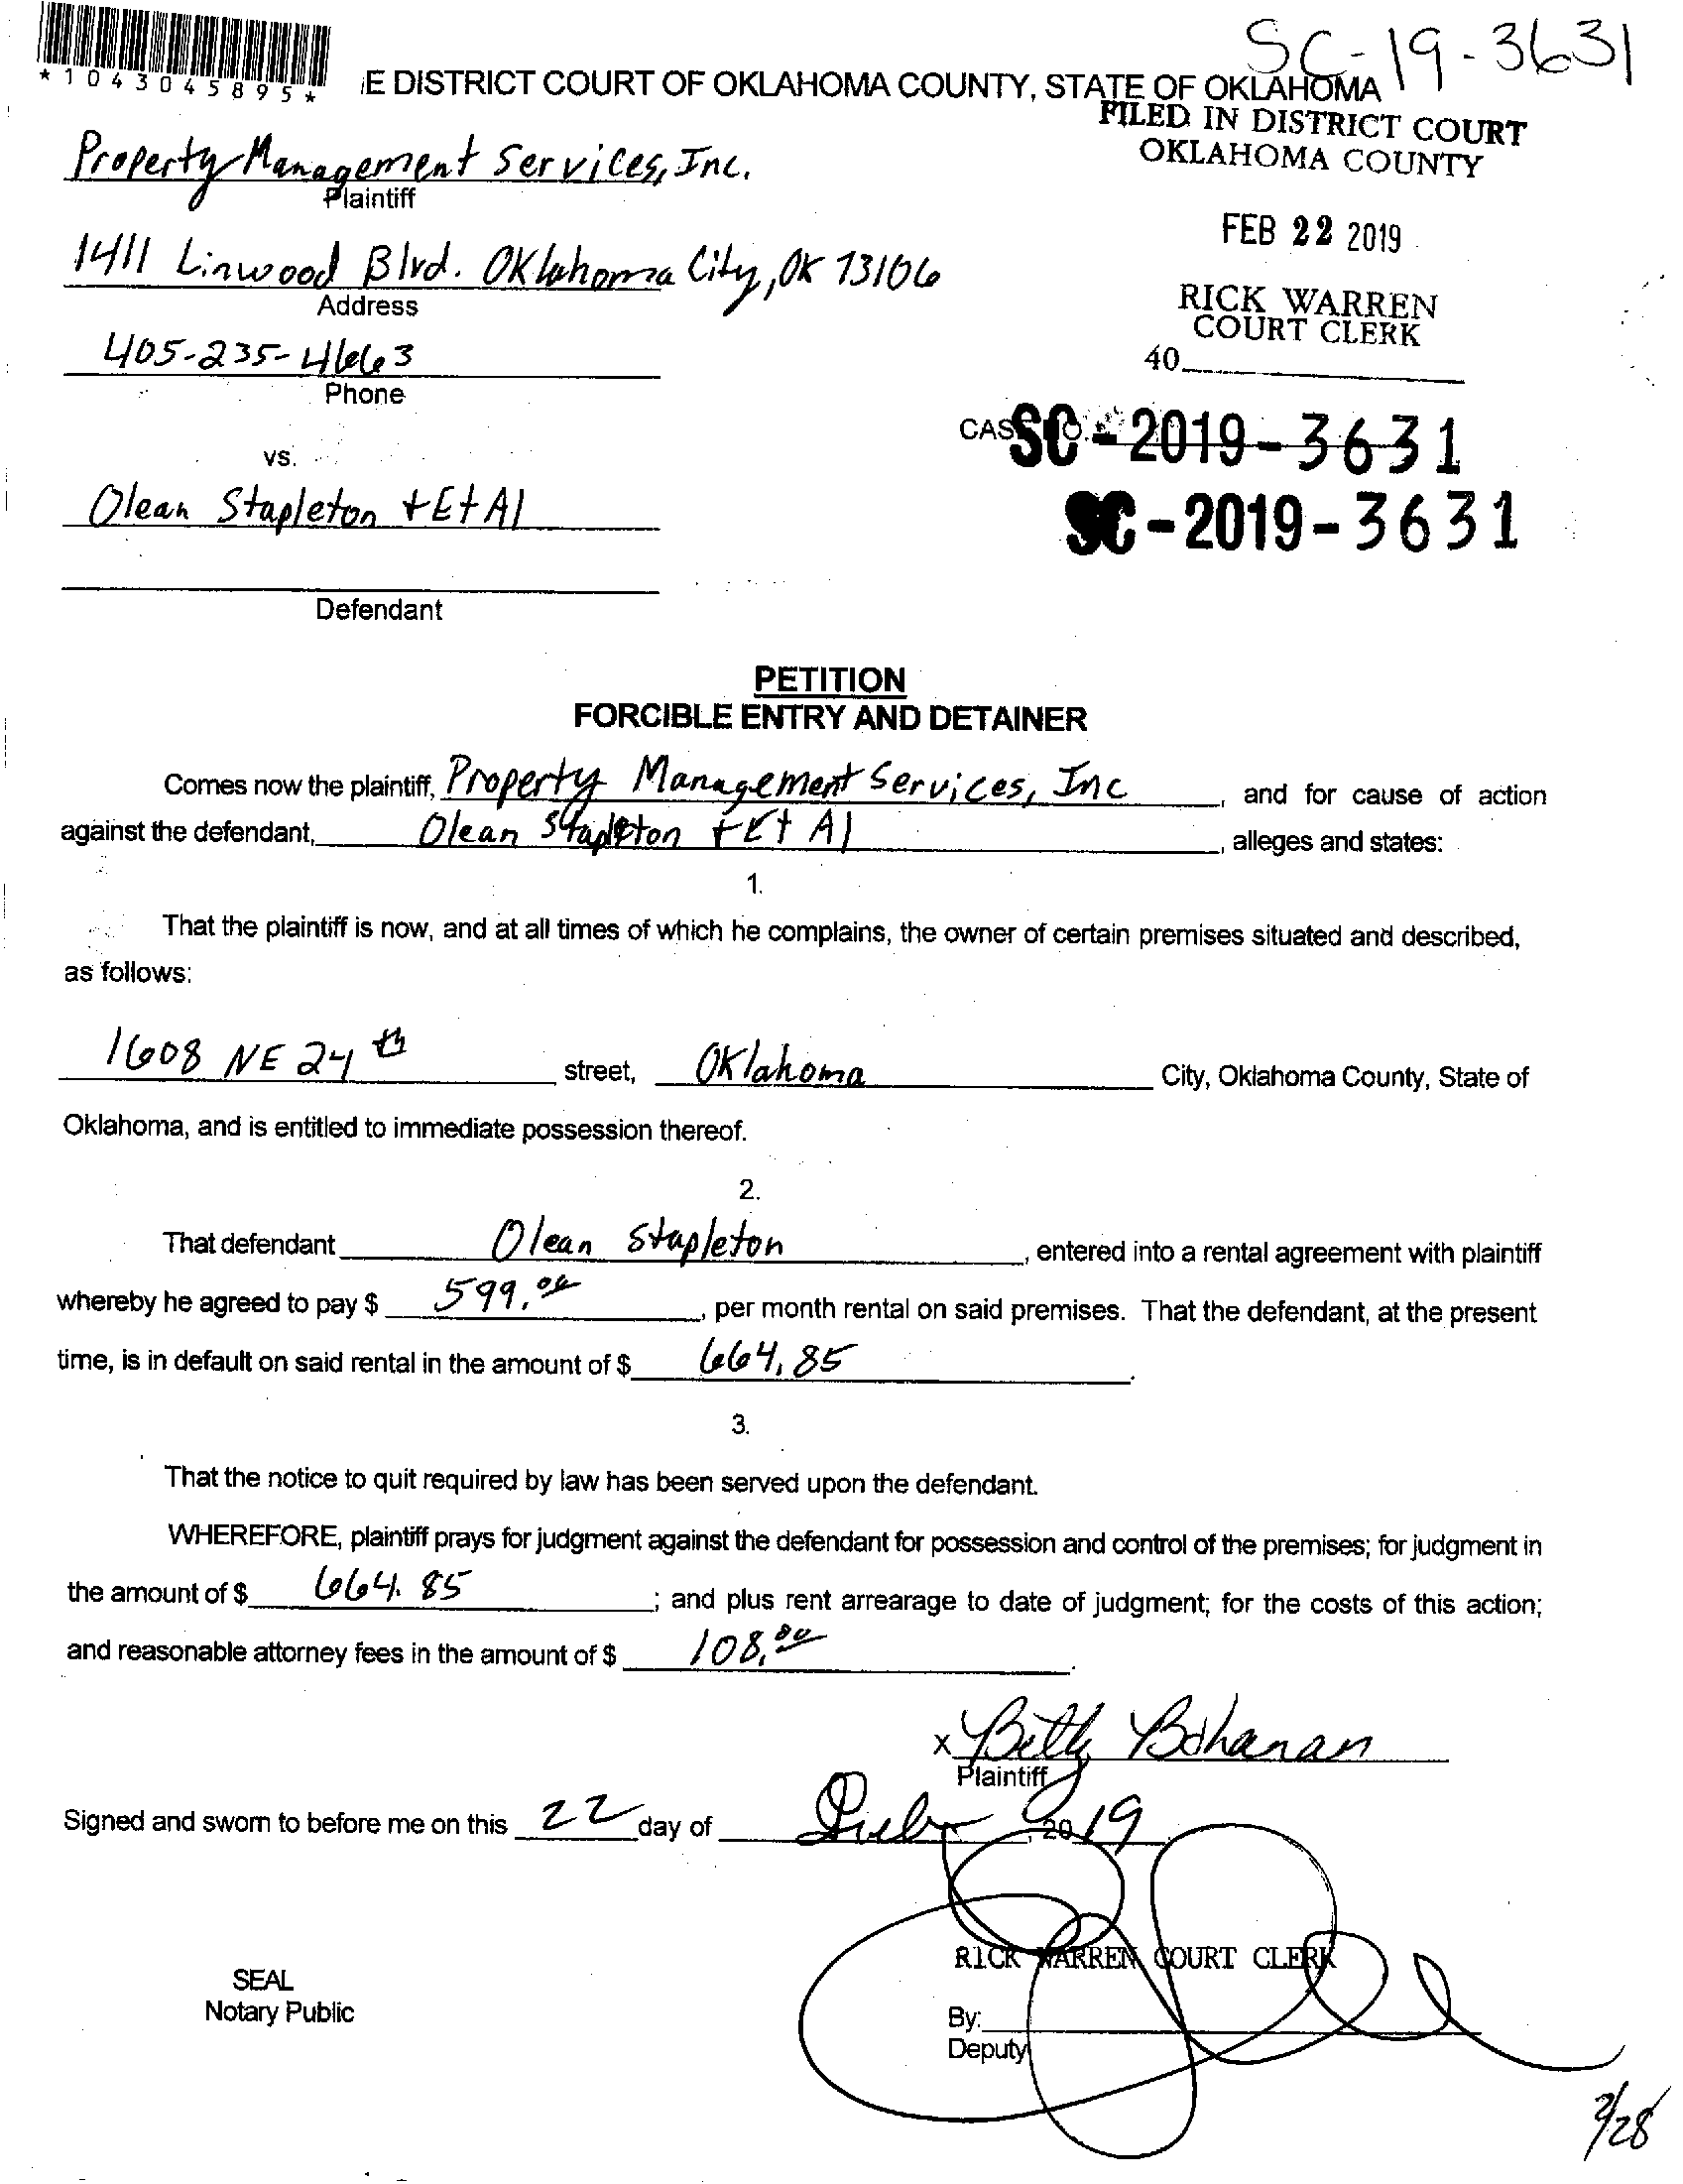 SC-19-3631
*1043045895*
E DISTRICT COURT OF OKLAHOMA COUNTY, STATE OF OKLAHOMA
FILED IN DISTRICT COURT
OKLAHOMA COUNTY
Property Management Services, Inc.
Plaintiff
FEB 22 2019
1411 Linwood Blvd. Oklahoma City, OK 73106
Address
RICK WARREN
COURT CLERK
405-235-4663
40
Phone
CAS SC-2019-3631
vs.
SC-2019-3631
Olean Stapleton + Et Al
Defendant
PETITION
FORCIBLE ENTRY AND DETAINER
Comes now the plaintiff, Property Management Services, Inc, and for cause of action
against the defendant, Olean Stapleton + Et Al, alleges and states:
1.
That the plaintiff is now, and at all times of which he complains, the owner of certain premises situated and described,
as follows:
1608 NE 24th street, Oklahoma City, Oklahoma County, State of
Oklahoma, and is entitled to immediate possession thereof.
2.
That defendant Olean Stapleton, entered into a rental agreement with plaintiff
whereby he agreed to pay $ 599.00, per month rental on said premises. That the defendant, at the present
time, is in default on said rental in the amount of $ 664.85.
3.
That the notice to quit required by law has been served upon the defendant.
WHEREFORE, plaintiff prays for judgment against the defendant for possession and control of the premises; for judgment in
the amount of $ 664.85; and plus rent arrearage to date of judgment; for the costs of this action;
and reasonable attorney fees in the amount of $ 108.00.
x Betty Bohanan
Plaintiff
Signed and sworn to before me on this 22 day of Feb, 2019
RICK WARREN COURT CLERK
SEAL
Notary Public
By:
Deputy
2/28